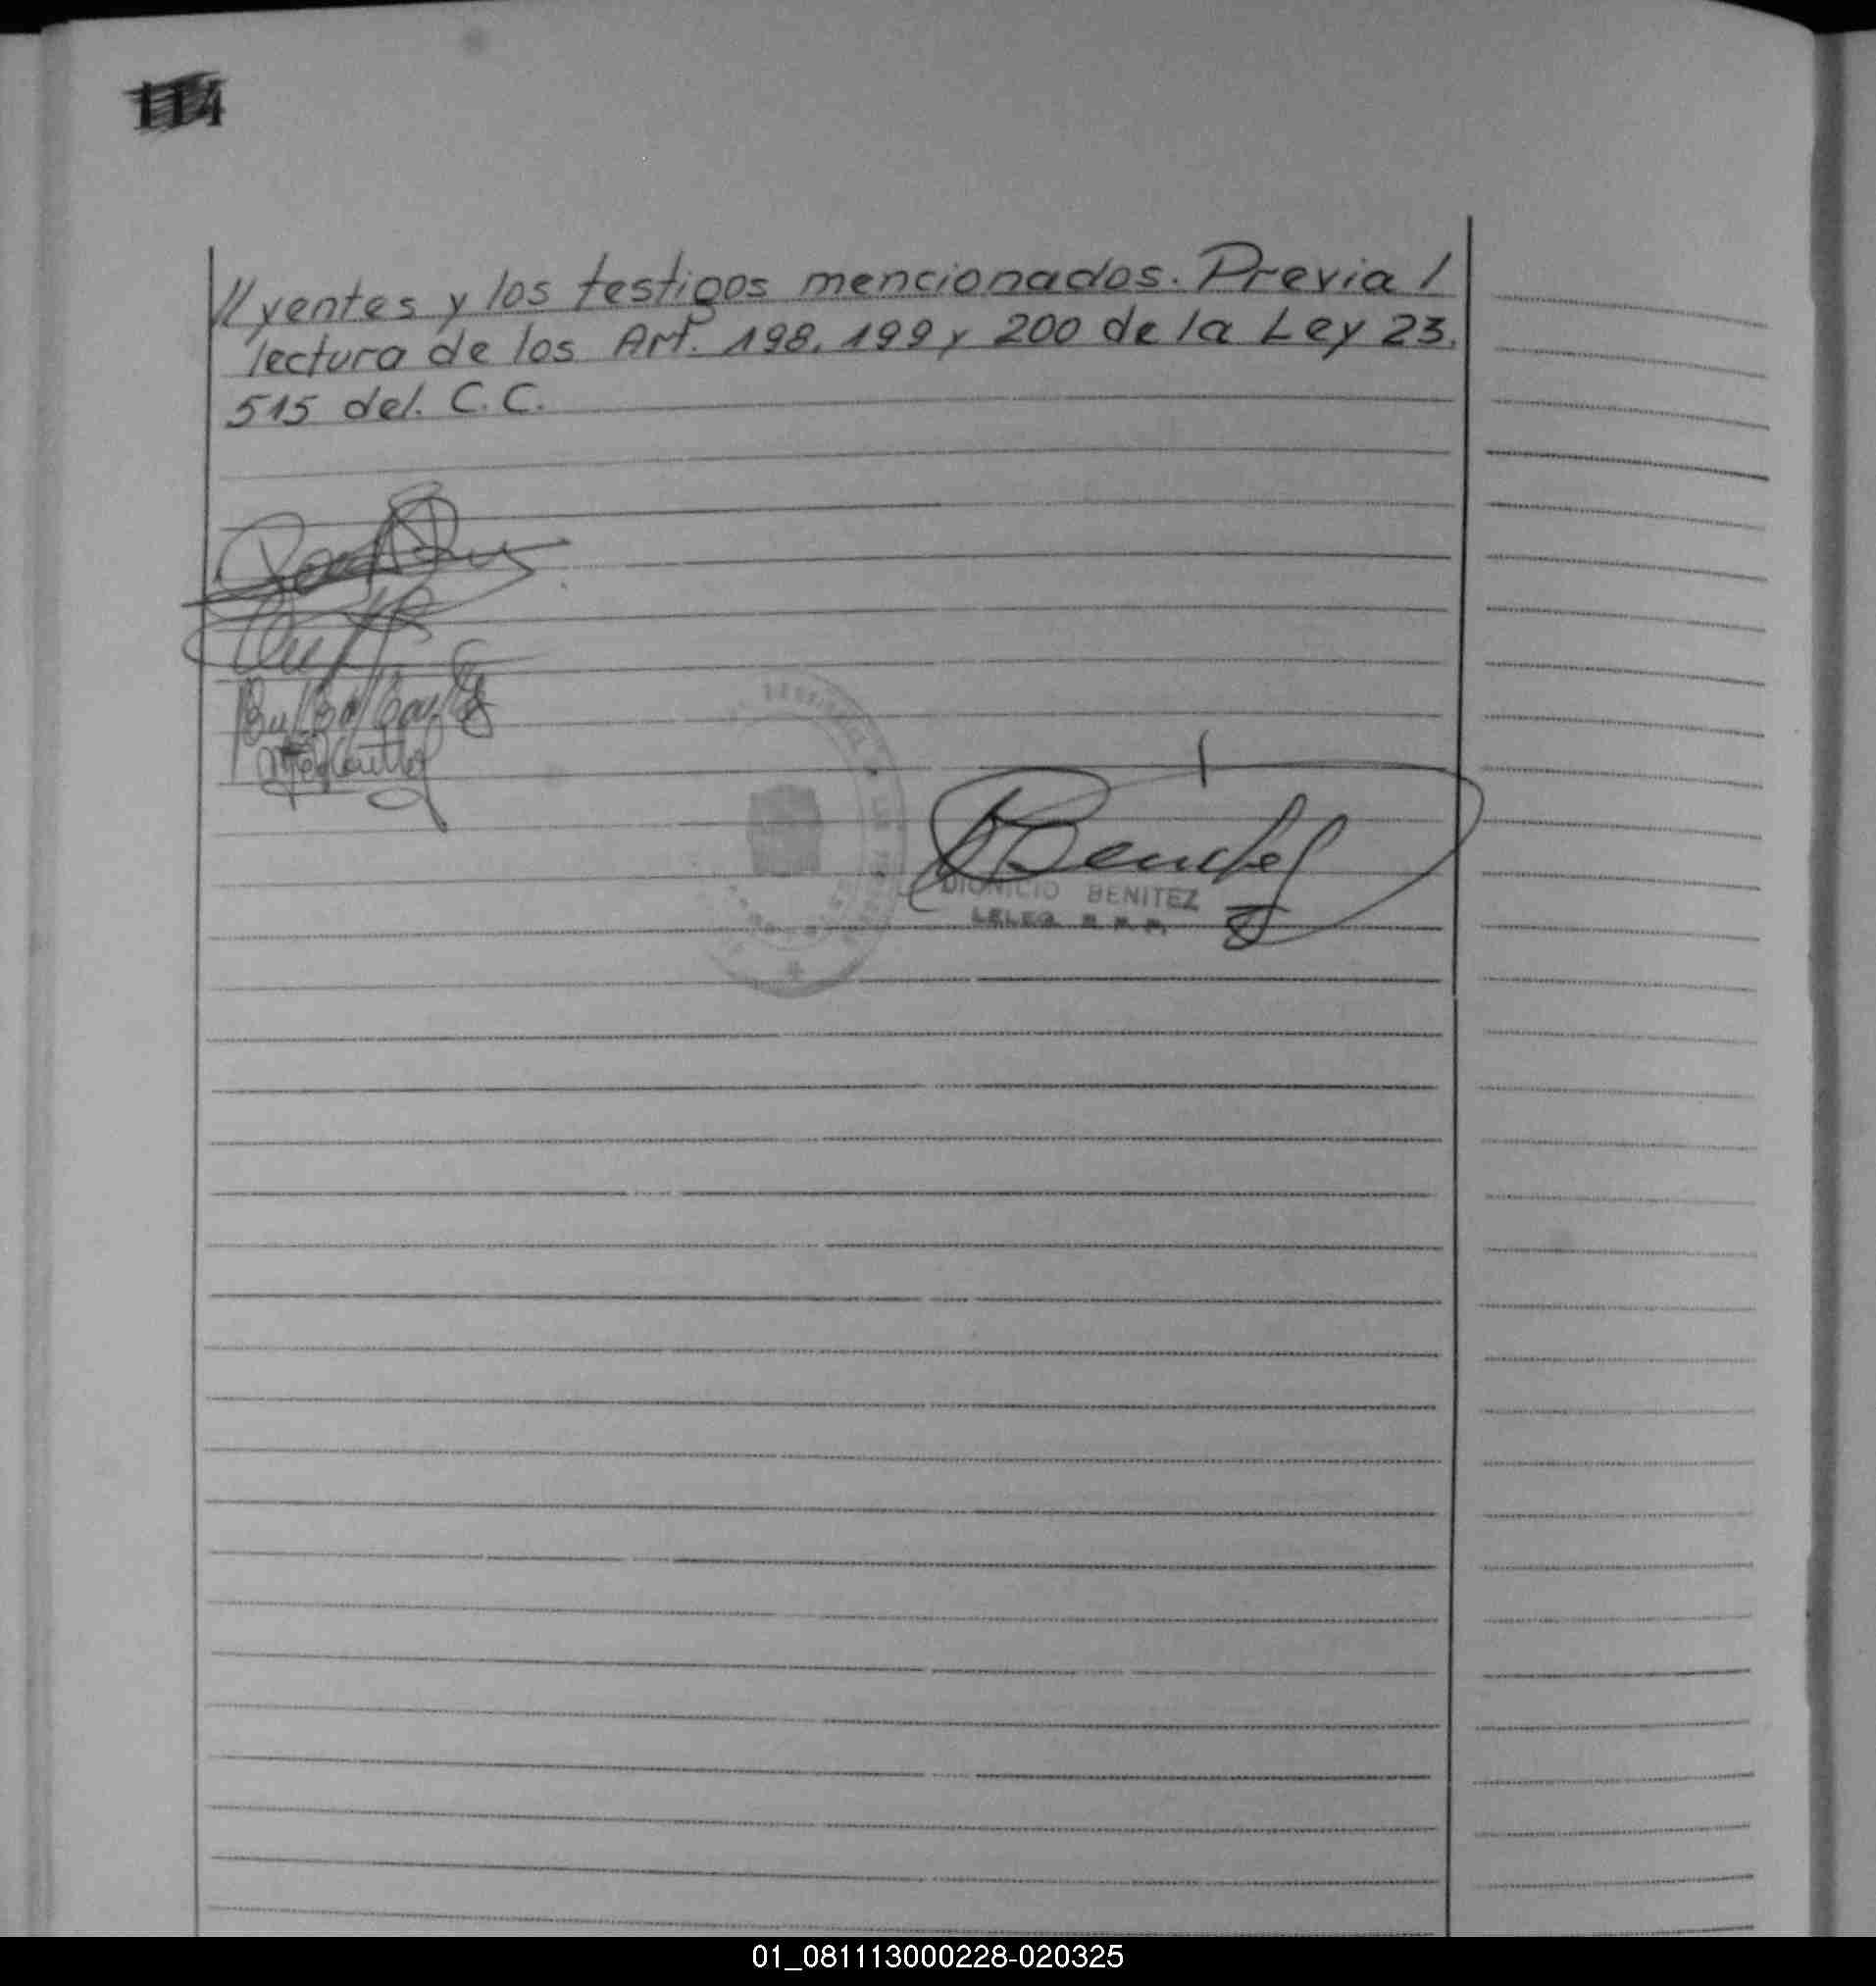 114
//yentes y los testigos mencionados. Previa /
lectura de los Art. 198, 199 y 200 de la Ley 23.
515 del. C. C.
DIONICIO BENITEZ
01_081113000228-020325